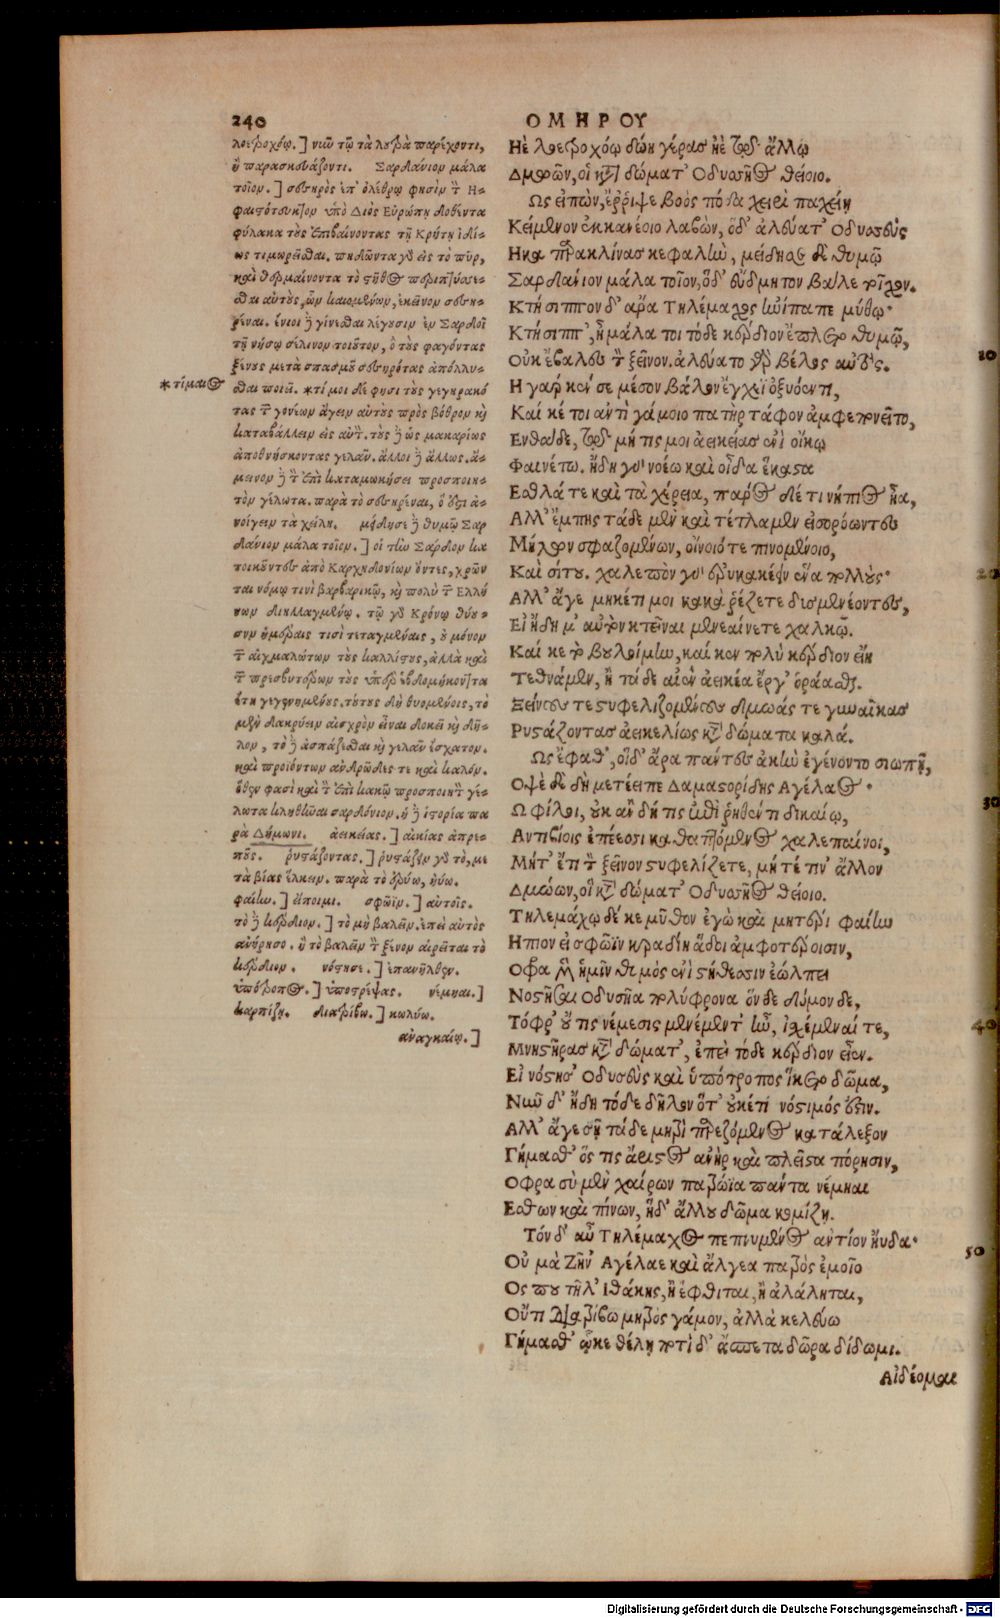 240
ΟΜΗΡΟΥ
λοετροχόῳ.] νιῶ τῷ τὰ λουτρὰ παρέχοντι,
ἢ παρασκευάζοντι. Σαρδάνιον μάλα
τοῖον.] σεσηρὸς ἐπ' ὀλέθρῳ φησὶν τὸν Η-
φαιστότευκτον ὑπὸ Διὸς Εὐρώπῃ δοθέντα
φύλακα τοὺς ἐπιβαίνοντας τῇ Κρήτῃ
τιμωρεῖσθαι. πηδῶντα γὰρ εἰς τὸ πῦρ,
καὶ θερμαίνοντα τὸ στῆθος περιπτύσσε-
σθαι αὐτοὺς, ὧν καιομένων, ἐκεῖνον σεση-
ρέναι. ἔνιοι δὲ γίνεσθαι λέγουσιν ἐν Σαρδοῖ
τῇ νήσῳ σέλινον τοιοῦτον, ὃ τοὺς φαγόντας
ξένους μετὰ σπασμοῦ σεσηρότας ἀπόλλυ-
*τίμαιος
σθαι ποιεῖ. *τίμοι δέ φησι τοὺς γεγηρακό
τας τῶν γονέων ἄγειν αὐτοὺς πρὸς βόθρον καὶ
καταβάλλειν εἰς αὐτόν. τοὺς δὲ ὡς μακαρίως
ἀποθνήσκοντας γελᾶν. ἄλλοι δὲ ἄλλως. ἄ-
μεινον δὲ τὸν ἐπὶ καταμωκήσει προσποιη-
τὸν γέλωτα. παρὰ τὸ σεσηρέναι, ὅ ἐστι ἀ-
νοίγειν τὰ χείλη. μείδησε δὲ θυμῷ Σαρ
δάνιον μάλα τοῖον.] οἱ τὴν Σαρδὸν κα
τοικοῦντες ἀπὸ Καρχηδονίων ὄντες, χρῶν
ται νόμῳ τινὶ βαρβαρικῷ, καὶ πολὺ τῶν Ελλή
νων διηλλαγμένῳ. τῷ γὰρ Κρόνῳ θύου-
σιν ἡμέραις τισὶ τεταγμέναις, οὐ μόνον
τῶν αἰχμαλώτων τοὺς καλλίστους, ἀλλὰ καὶ
τῶν πρεσβυτέρων τοὺς ὑπὲρ ἑβδομήκοντα
ἔτη γεγενημένους. τούτοις δὴ θυομένοις, τὸ
μὲν δακρύειν αἰσχρὸν εἶναι δοκεῖ καὶ δή-
λον, τὸ δὲ ἀσπάζεσθαι καὶ γελᾶν ἔσχατον.
καὶ προϊόντων ἀνδρῶδές τε καὶ καλόν.
ὅθεν φασὶ καὶ τὸν ἐπὶ κακῷ προσποιητὸν γέ-
λωτα κληθῆναι σαρδόνιον. ἡ δὲ ἱστορία πα
ρὰ Δήμωνι. ἀεικείας.] αἰκίας ἀπρε-
ποῦς. ῥυστάζοντας.] ῥυστάζειν γὰρ τὸ, με
τὰ βίας ἕλκειν. παρὰ τὸ ἐρύω, ῥύω.
φαίην.] εἴποιμι. σφῶϊν.] αὐτοῖς.
τὸ δὲ κέρδιον.] τὸ μὴ βαλεῖν. ἐπεὶ αὐτὸς
ἀνῄρησο. ἢ τὸ βαλεῖν τὸν ξένον αἱρεῖται τὸ
κέρδιον. νόστησε.] ἐπανῆλθεν.
ὑπότροπος.] ὑποστρέψας. νέμηαι.]
καρπίζῃ. διατρίβω.] κωλύω.
ἀναγκαίῳ.]
Ηὲ λοετροχόῳ δώῃ γέρας ἠὲ τῳ ἄλλῳ
Δμώων, οἳ κατὰ δώματ' Οδυσσῆος θείοιο.
Ως εἰπὼν, ἔρριψε βοὸς πόδα χειρὶ παχείῃ
Κείμενον ἐκ κανέοιο λαβὼν, ὅδ' ἀλεύατ' Οδυσσεὺς
Ηκα παρακλίνας κεφαλὴν, μείδησε δὲ θυμῷ
Σαρδάνιον μάλα τοῖον, ὅδ' εὔδμητον βάλε τοῖχον.
Κτήσιππον δ' ἄρα Τηλέμαχος ἠνίπαπε μύθῳ·
Κτήσιππ', ἦ μάλα τοι τόδε κέρδιον ἔπλετο θυμῷ,
10
Οὐκ ἔβαλες τὸν ξεῖνον. ἀλεύατο γὰρ βέλος αὐτός.
Η γάρ κέν σε μέσον βάλον ἔγχεϊ ὀξυόεντι,
Καί κέ τοι ἀντὶ γάμοιο πατὴρ τάφον ἀμφεπονεῖτο,
Ενθάδε, τῷ μή τίς μοι ἀεικείας ἐνὶ οἴκῳ
Φαινέτω. ἤδη γὰρ νοέω καὶ οἶδα ἕκαστα
Εσθλά τε καὶ τὰ χέρεια, πάρος δέ τι νήπιος ἦα,
Αλλ' ἔμπης τάδε μὲν καὶ τέτλαμεν εἰσορόωντες
Μήλων σφαζομένων, οἴνοιό τε πινομένοιο,
20
Καὶ σίτου. χαλεπὸν γὰρ ἐρυκακέειν ἕνα πολλούς·
Αλλ' ἄγε μηκέτι μοι κακὰ ῥέζετε δυσμενέοντες,
Εἰ ἤδη μ' αὐτὸν κτεῖναι μενεαίνετε χαλκῷ.
Καί κε τὸ βουλοίμην, καί κεν πολὺ κέρδιον εἴη
Τεθνάμεν, ἢ τάδε αἰὲν ἀεικέα ἔργ' ὁράασθαι
Ξείνους τε στυφελιζομένους δμωάς τε γυναῖκας
Ρυστάζοντας ἀεικελίως κατὰ δώματα καλά.
Ως ἔφαθ', οἵδ' ἄρα πάντες ἀκὴν ἐγένοντο σιωπῇ,
Οψὲ δὲ δὴ μετέειπε Δαμαστορίδης Αγέλαος·
30
Ω φίλοι, οὐκ ἂν δή τις ἐπὶ ῥηθέντι δικαίῳ,
Αντιβίοις ἐπέεσσι καθαπτόμενος χαλεπαίνοι,
Μήτ' ἔτι τὸν ξεῖνον στυφελίζετε, μήτέ τιν' ἄλλον
Δμώων, οἳ κατὰ δώματ' Οδυσσῆος θείοιο.
Τηλεμάχῳ δέ κε μῦθον ἐγὼ καὶ μητέρι φαίην
Ηπιον εἰ σφῶϊν κραδίῃ ἅδοι ἀμφοτέροισιν,
Οφρα μὲν ἡμῖν θυμὸς ἐνὶ στήθεσσιν ἐώλπει
Νοστῆσαι Οδυσῆα πολύφρονα ὅν δε δόμον δε,
40
Τόφρ' οὔ τις νέμεσις μενέμεντ' ἦν, ἰσχέμεναί τε,
Μνηστῆρας κατὰ δώματ', ἐπεὶ τόδε κέρδιον εἶεν.
Εἰ νόστησ' Οδυσεὺς καὶ ὑπότροπος ἵκετο δῶμα,
Νῦν δ' ἤδη τόδε δῆλον ὅτ' οὐκέτι νόστιμός ἐστιν.
Αλλ' ἄγε σῇ τάδε μητρὶ παρεζόμενος κατάλεξον
Γήμασθ' ὅς τις ἄριστος ἀνὴρ καὶ πλεῖστα πόρησιν,
Οφρα σὺ μὲν χαίρων πατρώϊα πάντα νέμηαι
Εσθων καὶ πίνων, ἡδ' ἄλλου δῶμα κομίζῃ.
Τόν δ' αὖ Τηλέμαχος πεπνυμένος ἀντίον ηὔδα·
50
Οὐ μὰ Ζῆν' Αγέλαε καὶ ἄλγεα πατρὸς ἐμοῖο
Ος που τῆλ' Ιθάκης, ἢ ἔφθιται, ἢ ἀλάληται,
Οὔτι διατρίβω μητρὸς γάμον, ἀλλὰ κελεύω
Γήμασθ' ᾧκε θέλῃ ποτὶ δ' ἄσπετα δῶρα δίδωμι.
Αἰδέομαι
Digitalisierung gefördert durch die Deutsche Forschungsgemeinschaft - DFG